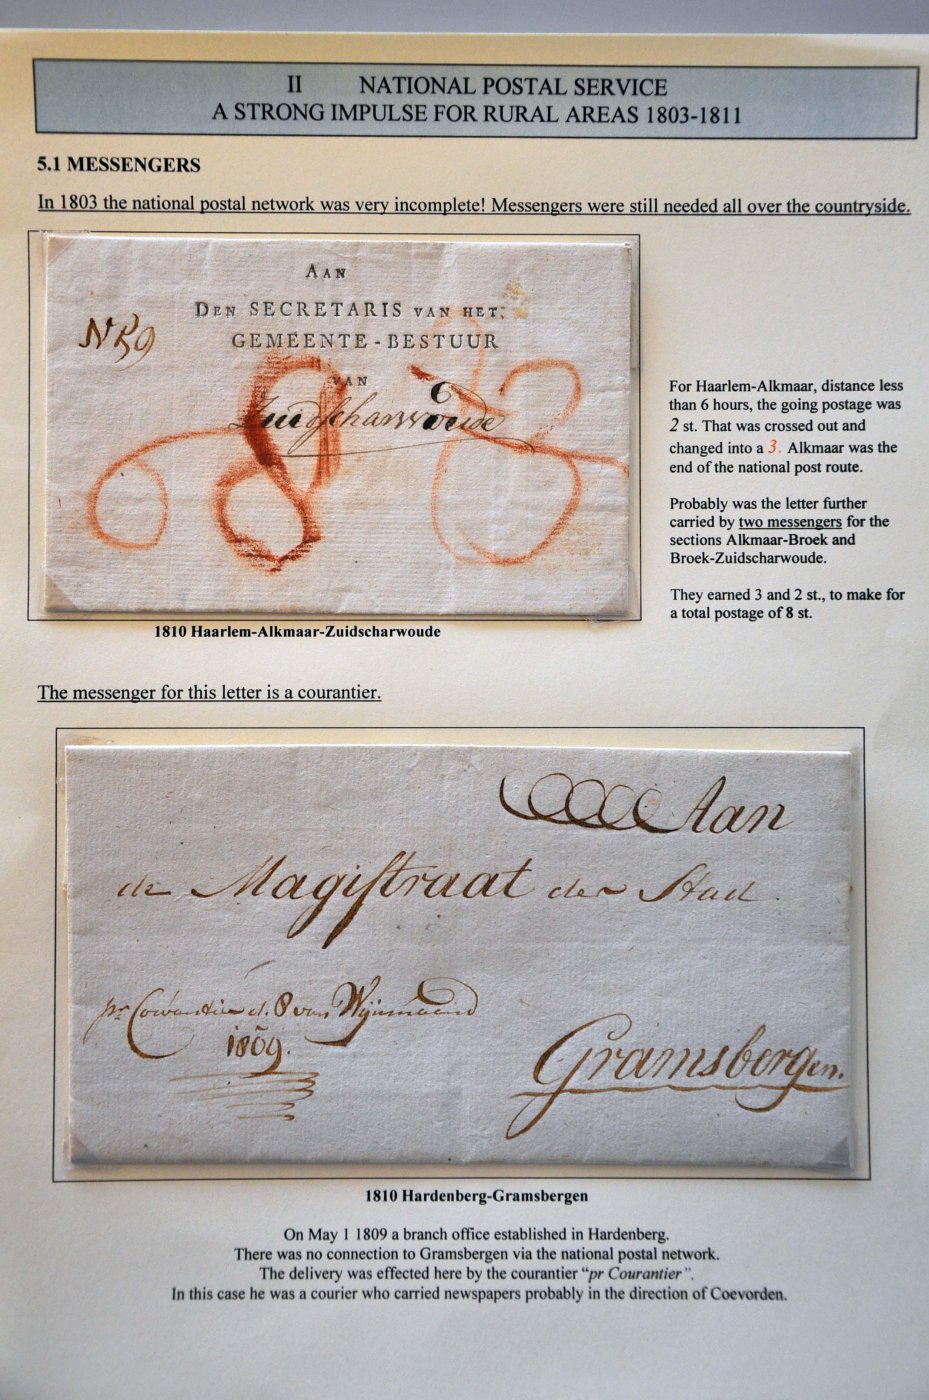 II NATIONAL POSTAL SERVICE
A STRONG IMPULSE FOR RURAL AREAS 1803-1811
5.1 MESSENGERS
In 1803 the national postal network was very incomplete! Messengers were still needed all over the countryside.
AAN
DEN SECRETARIS VAN HET
GEMEENTE-BESTUUR
VAN
Zuidscharwoude
8
3
For Haarlem-Alkmaar, distance less
than 6 hours, the going postage was
2 st. That was crossed out and
changed into a 3. Alkmaar was the
end of the national post route.
Probably was the letter further
carried by two messengers for the
sections Alkmaar-Broek and
Broek-Zuidscharwoude.
They earned 3 and 2 st., to make for
a total postage of 8 st.
1810 Haarlem-Alkmaar-Zuidscharwoude
The messenger for this letter is a courantier.
Aan
de Magistraat der Stad
pr Courantier d. 8 van Wijnmaand
1809.
Gramsbergen.
1810 Hardenberg-Gramsbergen
On May 1 1809 a branch office established in Hardenberg.
There was no connection to Gramsbergen via the national postal network.
The delivery was effected here by the courantier “pr Courantier”.
In this case he was a courier who carried newspapers probably in the direction of Coevorden.